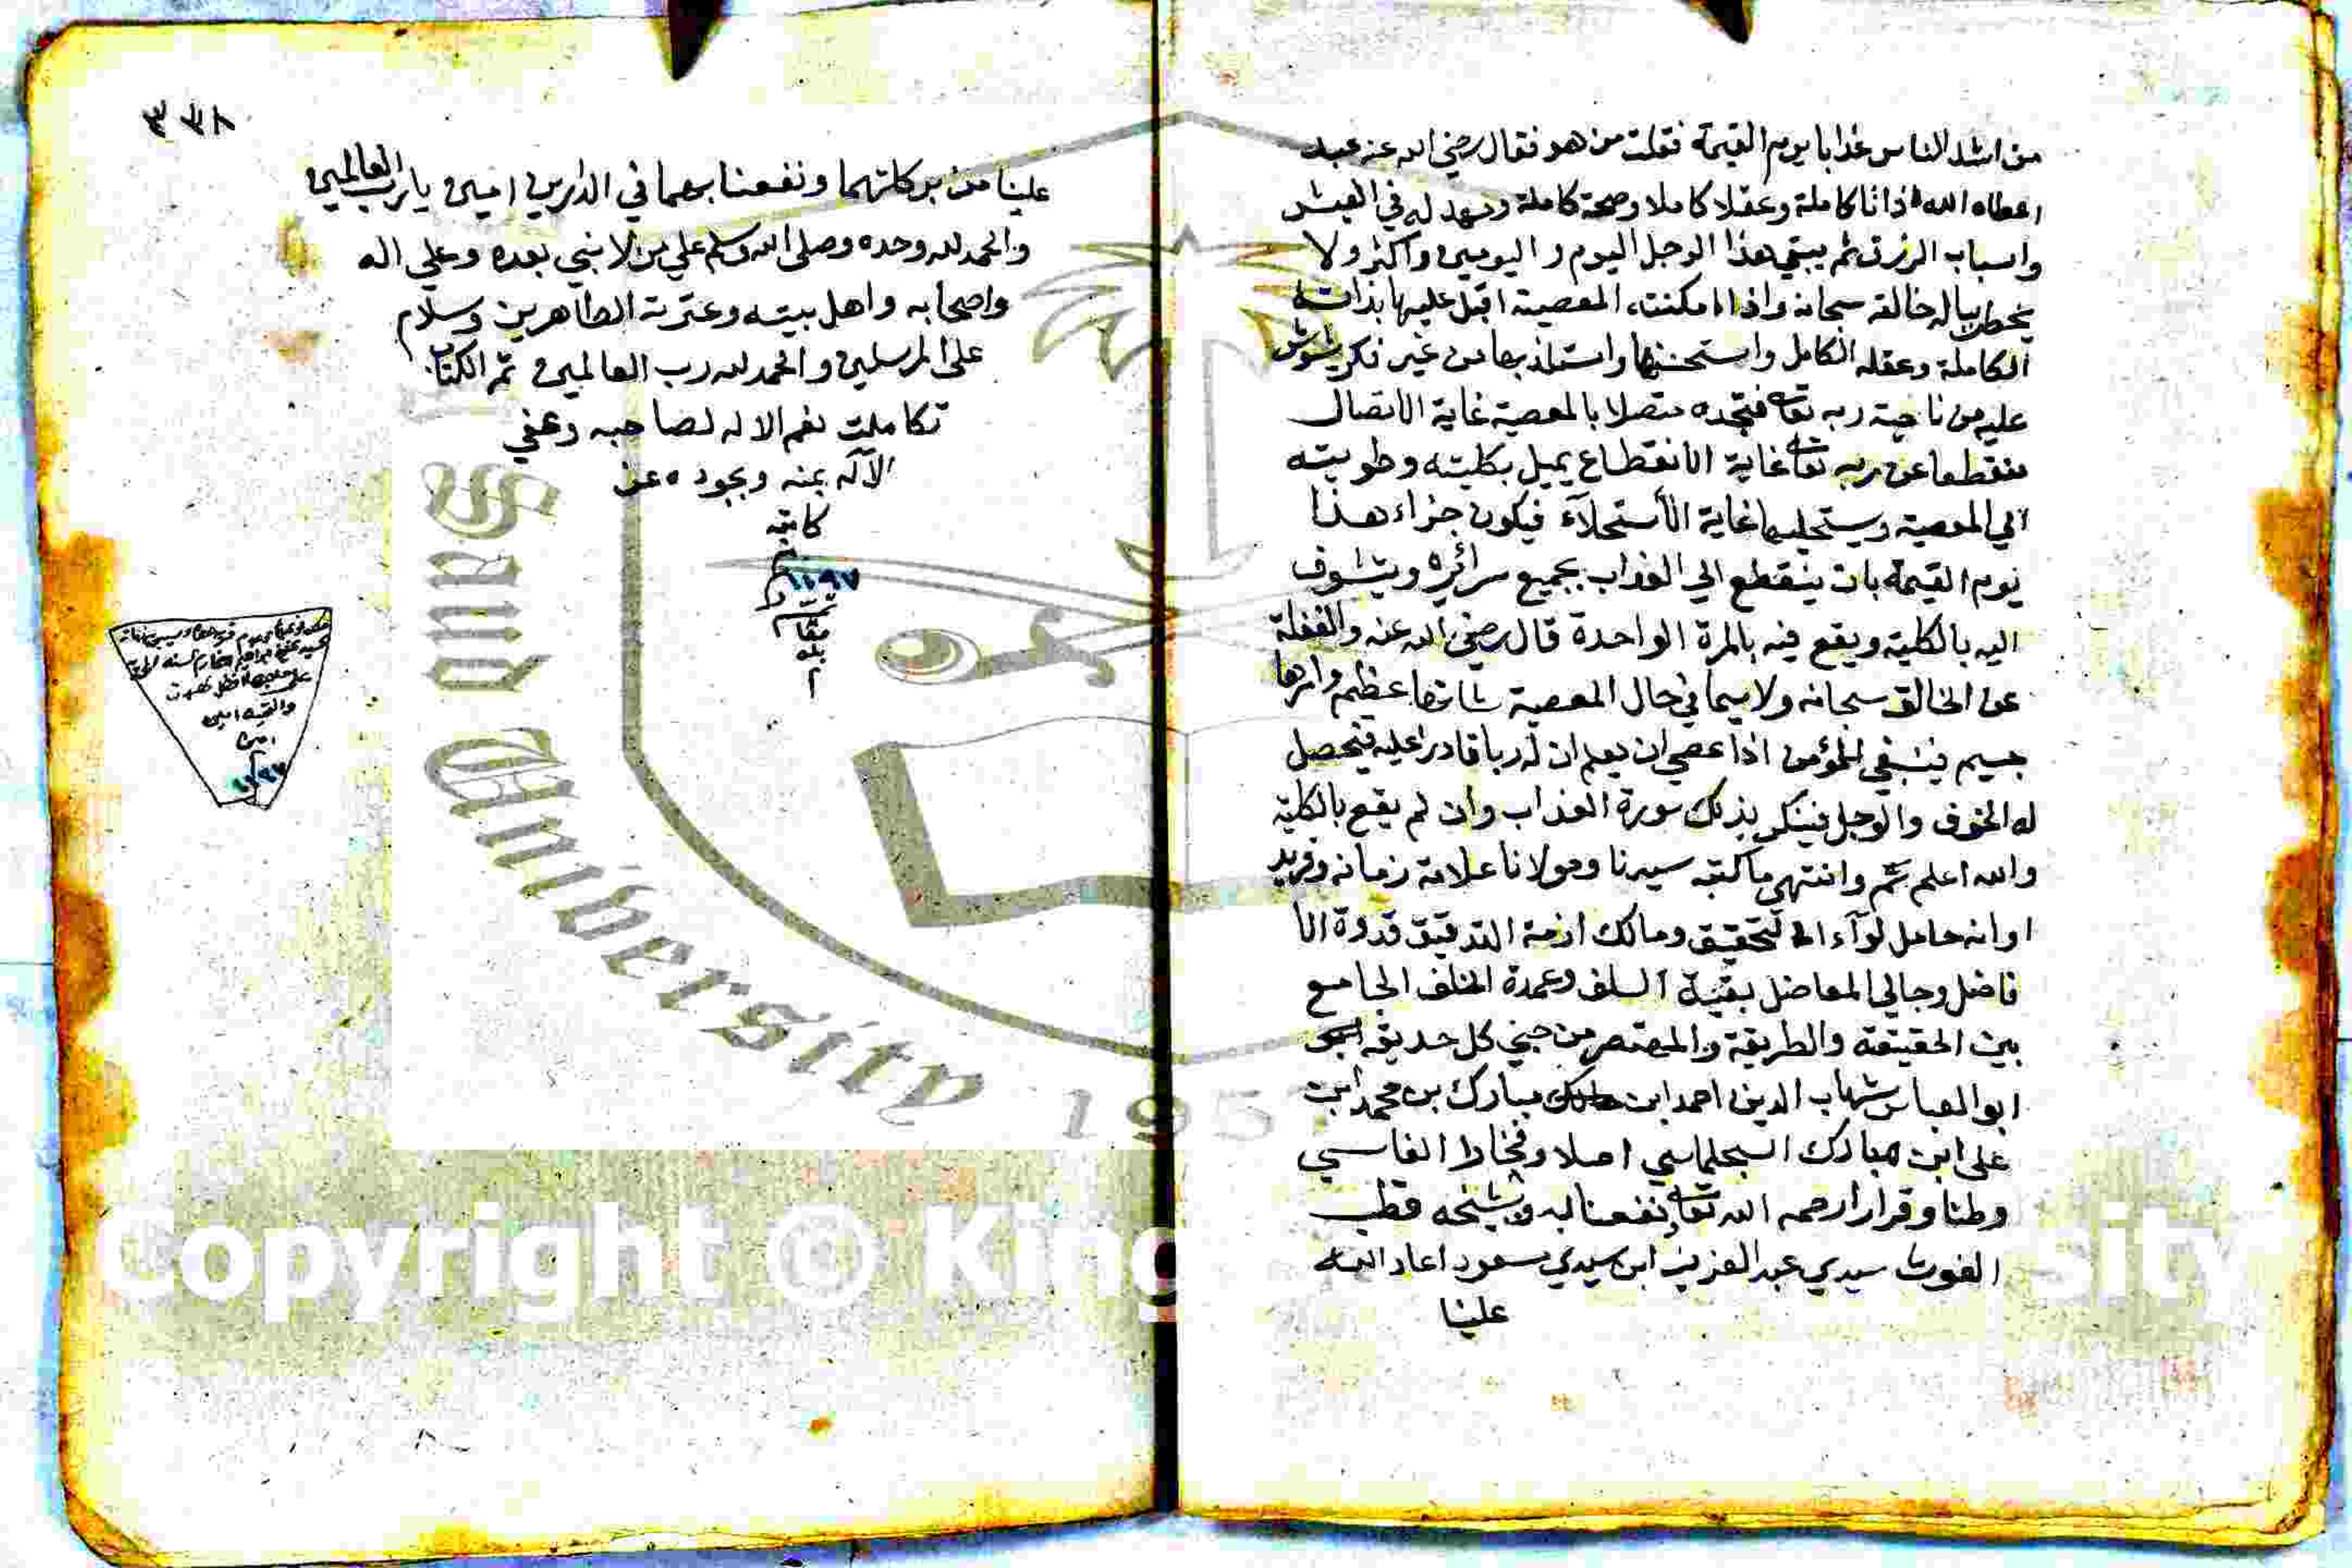 من اشد الناس عذابا يوم القيمة فقلت من هو فقال رضي الله عنه عبد
اعطاه الله ذاتا كاملة وعقلا كاملا وصحة كاملة ومهد له في العيش
واسباب الرزق ثم يبقي هذا الرجل اليوم و اليومين واكثر ولا
يخطر بباله خالقه سبحانه واذا امكنته المعصية اقبل عليها بذاته
الكاملة وعقله الكامل واستحسنها واستلذ بها من غير فكر يشوش
عليه من ناحية ربه تعالى فتجده متصلا بالمعصية غاية الاتصال
منقطعا عن ربه تعالى غاية الانقطاع يميل بكليته وطويته
الي المعصية ويستحليها غاية الأستحلآء فيكون جزاء هذا
يوم القيمة بان ينقطع الي العذاب بجميع سرائره ويتشوف
اليه بالكلية ويقع فيه بالمرة الواحدة قال رضي الله عنه والغفلة
عن الخالق سبحانه ولا سيما في حال المعصية شانها عظيم وامرها
جسيم فينبغي للمؤمن اذا عصي ان يعلم ان له ربا قادرا عليه فيحصل
له الخوف والوجل فينكسر بذلك سورة العذاب وان لم يقع بالكلية
والله اعلم تم وانتهى ما كتبه سيدنا ومولانا علامة زمانه وفريد
اوانه حامل لوآء التحقيق ومالك ازمة التدقيق قدوة الا
فاضل وجالي المعاضل بقية السلف وعمدة الخلف الجامع
بين الحقيقة والطريقة والمهتصر من جني كل حديقه
ابو العباس شهاب الدين احمد ابن مبارك بن محمد ابن
على ابن مبارك السجلماسي اصلا وفخارا الفاسي
وطنا وقرارا رحمه الله تعالى ونفعنا به وبشيخه قطب
الغوث سيدي عبد العزيز ابن سيدي مسعود اعاد الله
علينا
٣٣٨
علينا من بركاتهما ونفعنا بهما في الدارين امين يا رب العالمين
والحمد لله وحده وصلى الله وسلم علي من لا نبي بعده وعلي اله
واصحابه واهل بيته وعترته الطاهرين وسلام
على المرسلين والحمد لله رب العالمين تم الكتاب
تكاملت نعم الاله لصاحبه وعفي
الآله بمنه وبجوده عن
كاتبه
١١٩٧
على
امين
١١٩٧
King
University
195
Copyright © King
sity